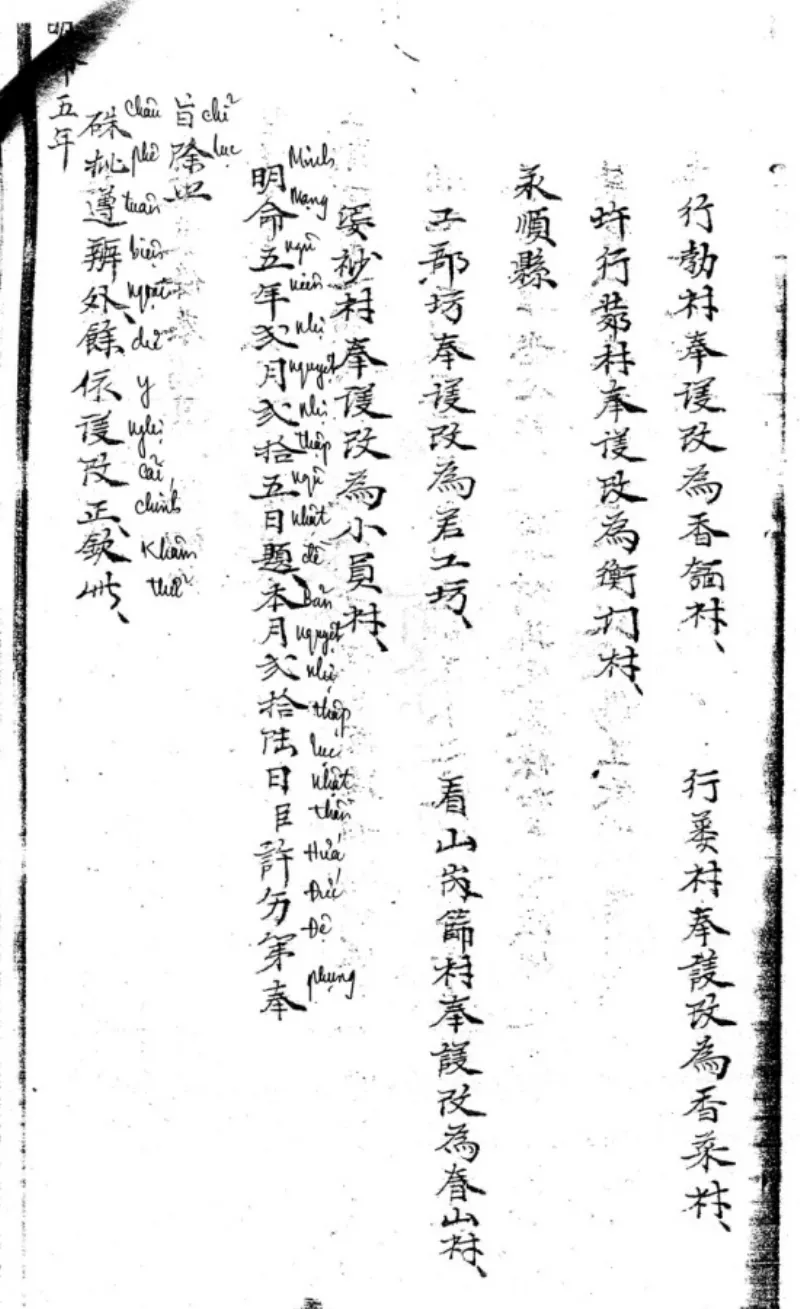 行勃村奉議改為香緬村、
行葵村奉議改為香菜村、
行蒌村奉議改為衡門村、
永順縣
工部坊奉議改為若工坊、
看山尚節村奉議改為眷山村、
村奉議改為小員村、
明命五年弍月弍拾五日題、本月弍拾陸日臣許分第奉
Minh Mạng ngũ niên nhị nguyệt nhị thập ngũ nhật đề Bản nguyệt nhị thập lục nhật thần Hứa Đức Đệ phụng
旨除
chỉ lục
硃批遵辦外、餘依議改正、欽此、
châu phê tuân biện ngoại dư y nghị cải chính Khâm thử
五年